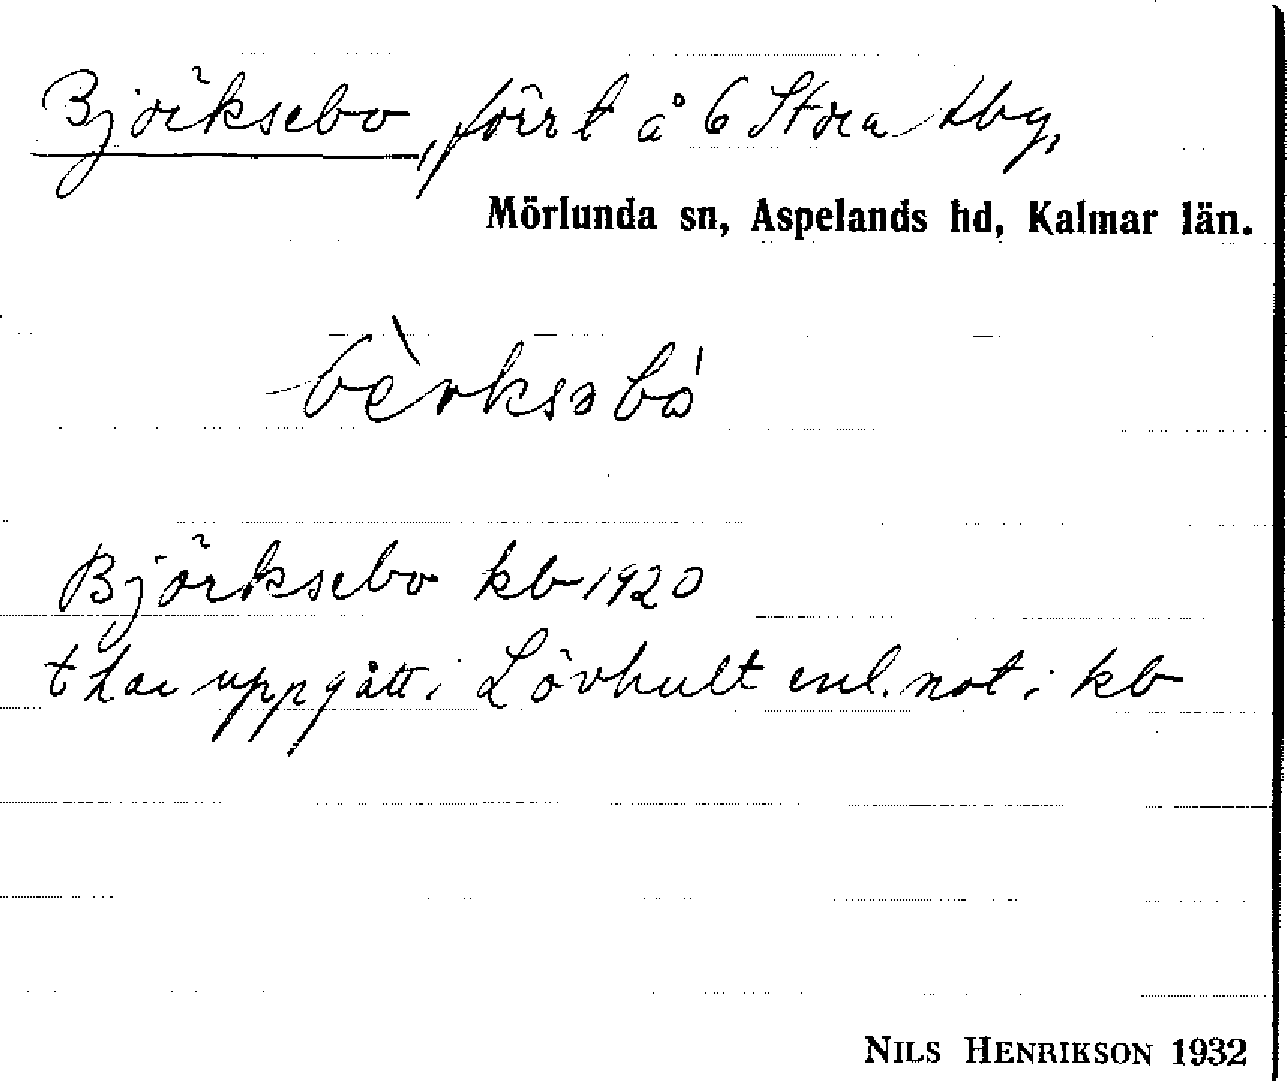 Björksebo, förr t å 6 Stora Abg,
Mörlunda sn, Aspelands hd, Kalmar län.
bè̀rksəbó
Björksebo kb 1920
t har uppgått i Lövhult enl. not i kb
NILS HENRIKSON 1932